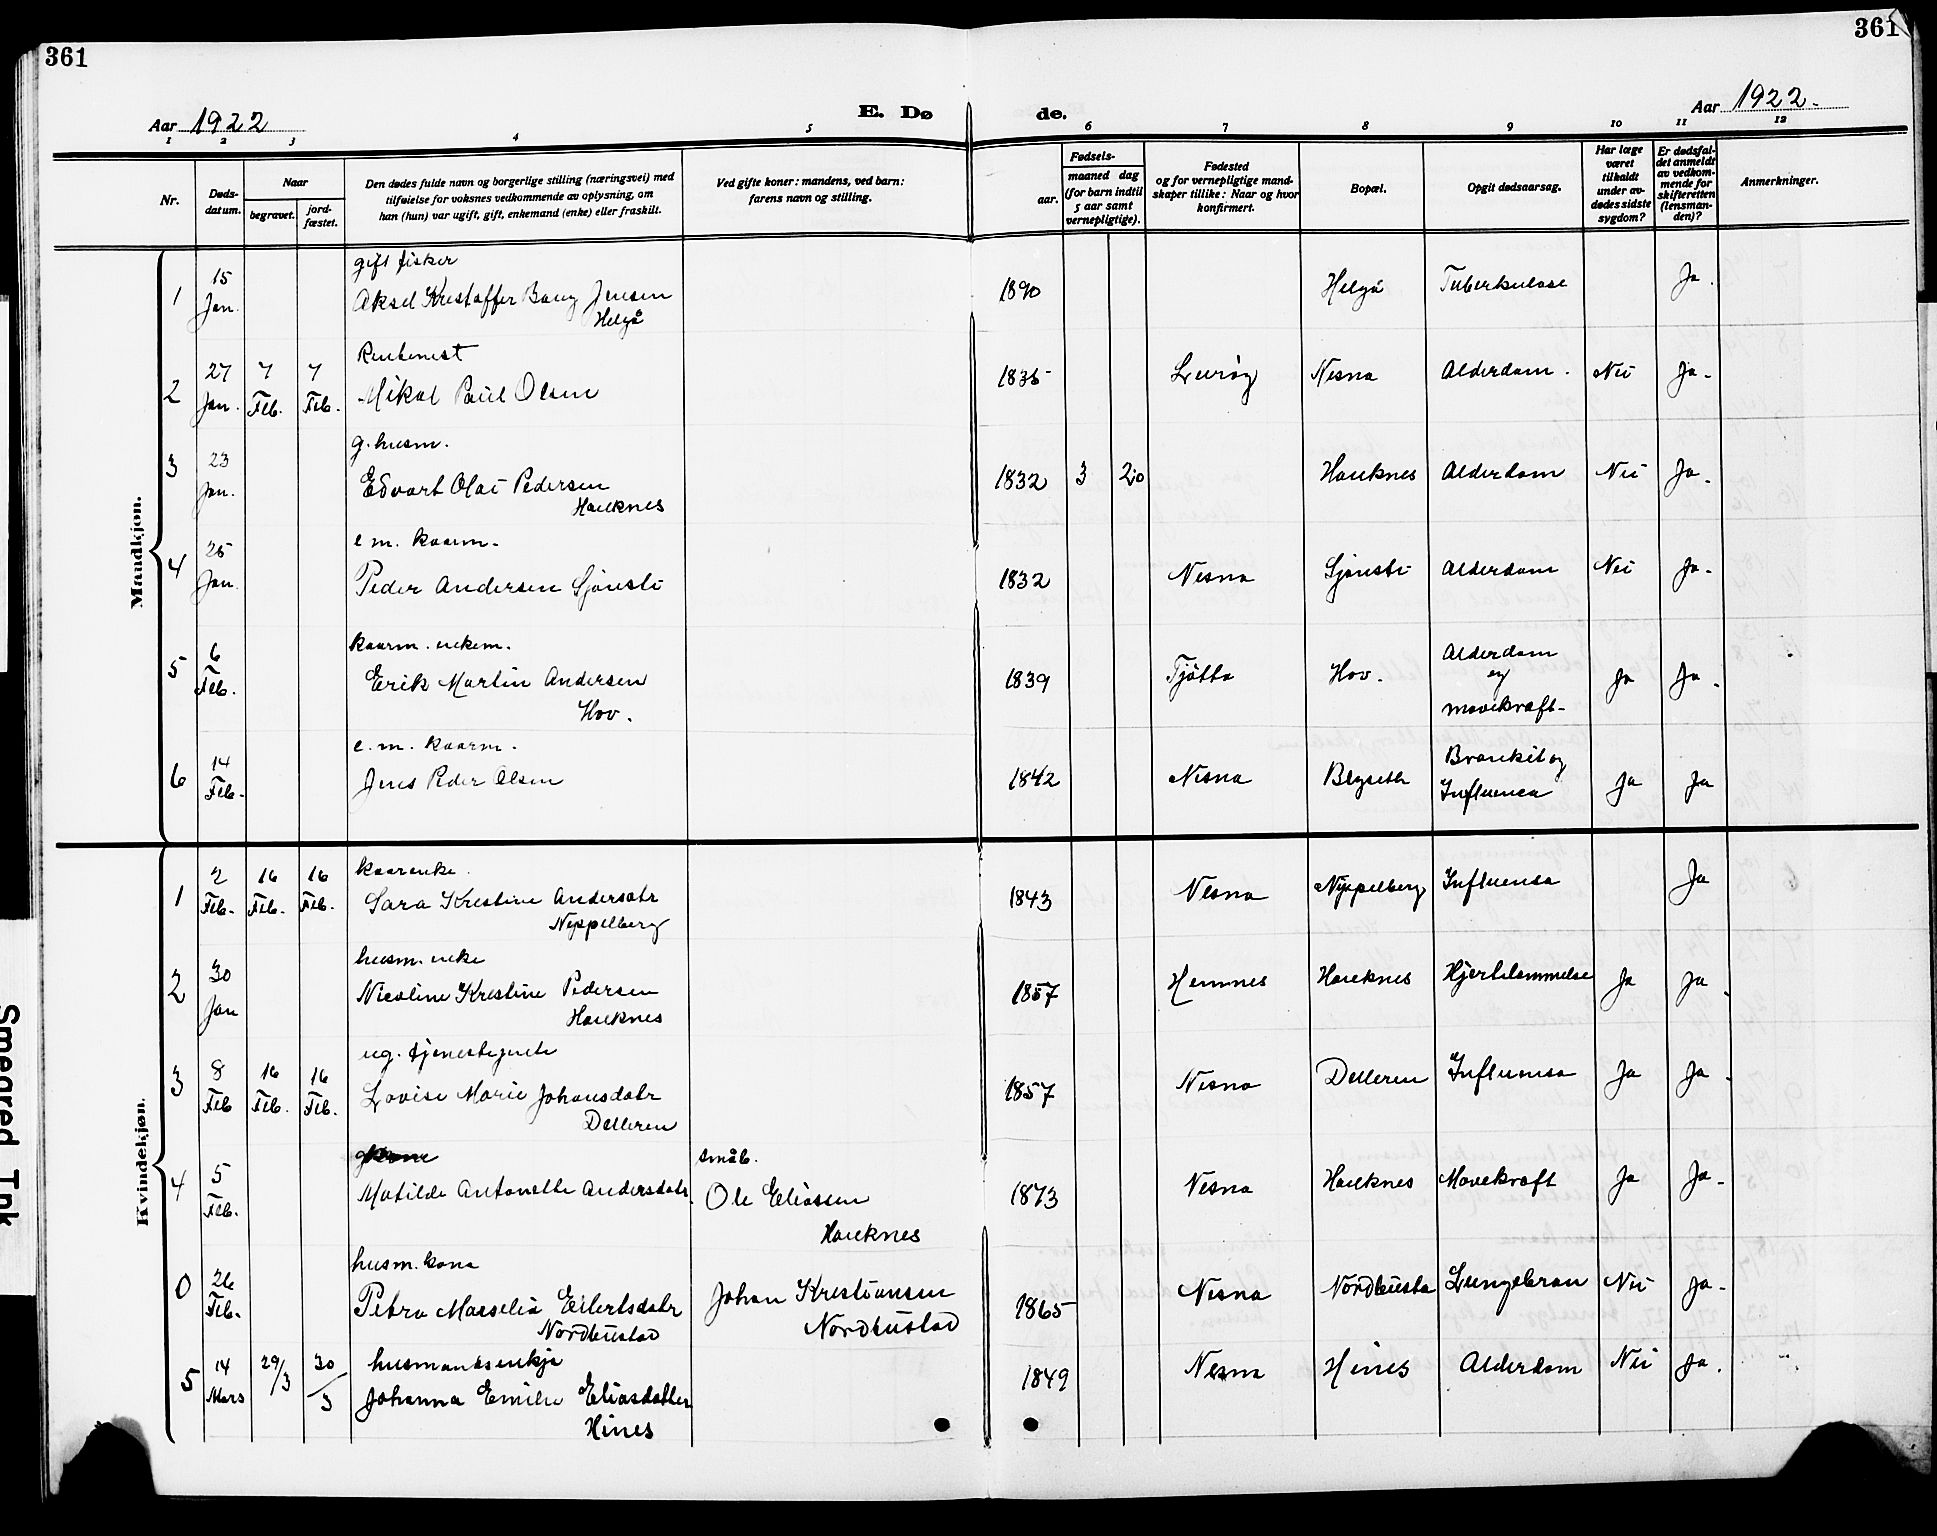 361
361
Aar 1922
E. Dø
de.
Aar 1922.
1 2 3 4 5 6 7 8 9 10 11 12
Nr.
Døds-
datum.
Naar
begravet.
jord-
fæstet.
Den dødes fulde navn og borgerlige stilling (næringsvei) med
tilføielse for voksnes vedkommende av oplysning, om
han (hun) var ugift, gift, enkemand (enke) eller fraskilt.
Ved gifte koner: mandens, ved barn:
farens navn og stilling.
Fødsels-
aar.
maaned dag
(for barn indtil
5 aar samt
vernepligtige).
Fødested
og for vernepligtige mand-
skaper tillike: Naar og hvor
konfirmert.
Bopæl.
Opgit dødsaarsag.
Har læge
været
tilkaldt
under av-
dødes sidste
sygdom?
Er dødsfal-
det anmeldt
av vedkom-
mende for
skifteretten
(lensman-
den)?
Anmerkninger.
Mandkjøn.
gift fisker
1 15 Jan. Aksel Kristoffer Bang Jensen 1890 Helgå Tuberkulose Ja.
Helgå
Rentenist
2 27 Jan. 7 Feb. 7 Feb. Mikal Paul Olsen 1835 Lurøy Nesna Alderdom. Nei Ja.
g. husm.
3 23 Jan. Edvart Olai Pedersen 1832 3 20 Hauknes Alderdom Nei Ja.
Hauknes
e m. kaarm.
4 25 Jan. Peder Andersen Sjönsti 1832 Nesna Sjönsti Alderdom Nei Ja.
kaarm. enkem.
5 6 Feb. Erik Martin Andersen 1839 Tjötta Hov. Alderdom og mavekræft. Ja Ja.
Hov.
e. m. kaarm.
6 14 Feb. Jens Peder Olsen 1842 Nesna Brankit og Influensa Ja Ja
Kvindekjøn.
kaarenke.
1 2 Feb. 16 Feb. 16 Feb. Sara Kristine Andersdtr 1843 Nesna Nyppelberg Influensa Ja
Nyppelberg
husm. enke
2 30 Jan Nicoline Kristine Pedersen 1857 Hemnes Hauknes Hjertelammelse Ja Ja.
Hauknes
ug. tjenestejente
3 8 Feb 16 Feb. 16 Feb. Lovise Marie Johansdatr 1857 Nesna Delleren Influensa Ja Ja.
Delleren
småb.
4 5 Feb. Matilde Antonette Andersdatr. Ole Eliassen 1873 Nesna Hauknes Mavekræft Ja Ja.
Hauknes
husm. kona
0 26 Feb. Petra Marselia Eilertsdatr Johan Kristiansen 1865 Nesna Nordbusta Lungebran Nei Ja.
Nordbustad Nordbustad
husmandsenkja
5 14 Mars 29/3 30/3 Johanna Emilie Eliasdatter 1849 Nesna Hines Alderdom Nei Ja.
Hines
Smøgred Tnk